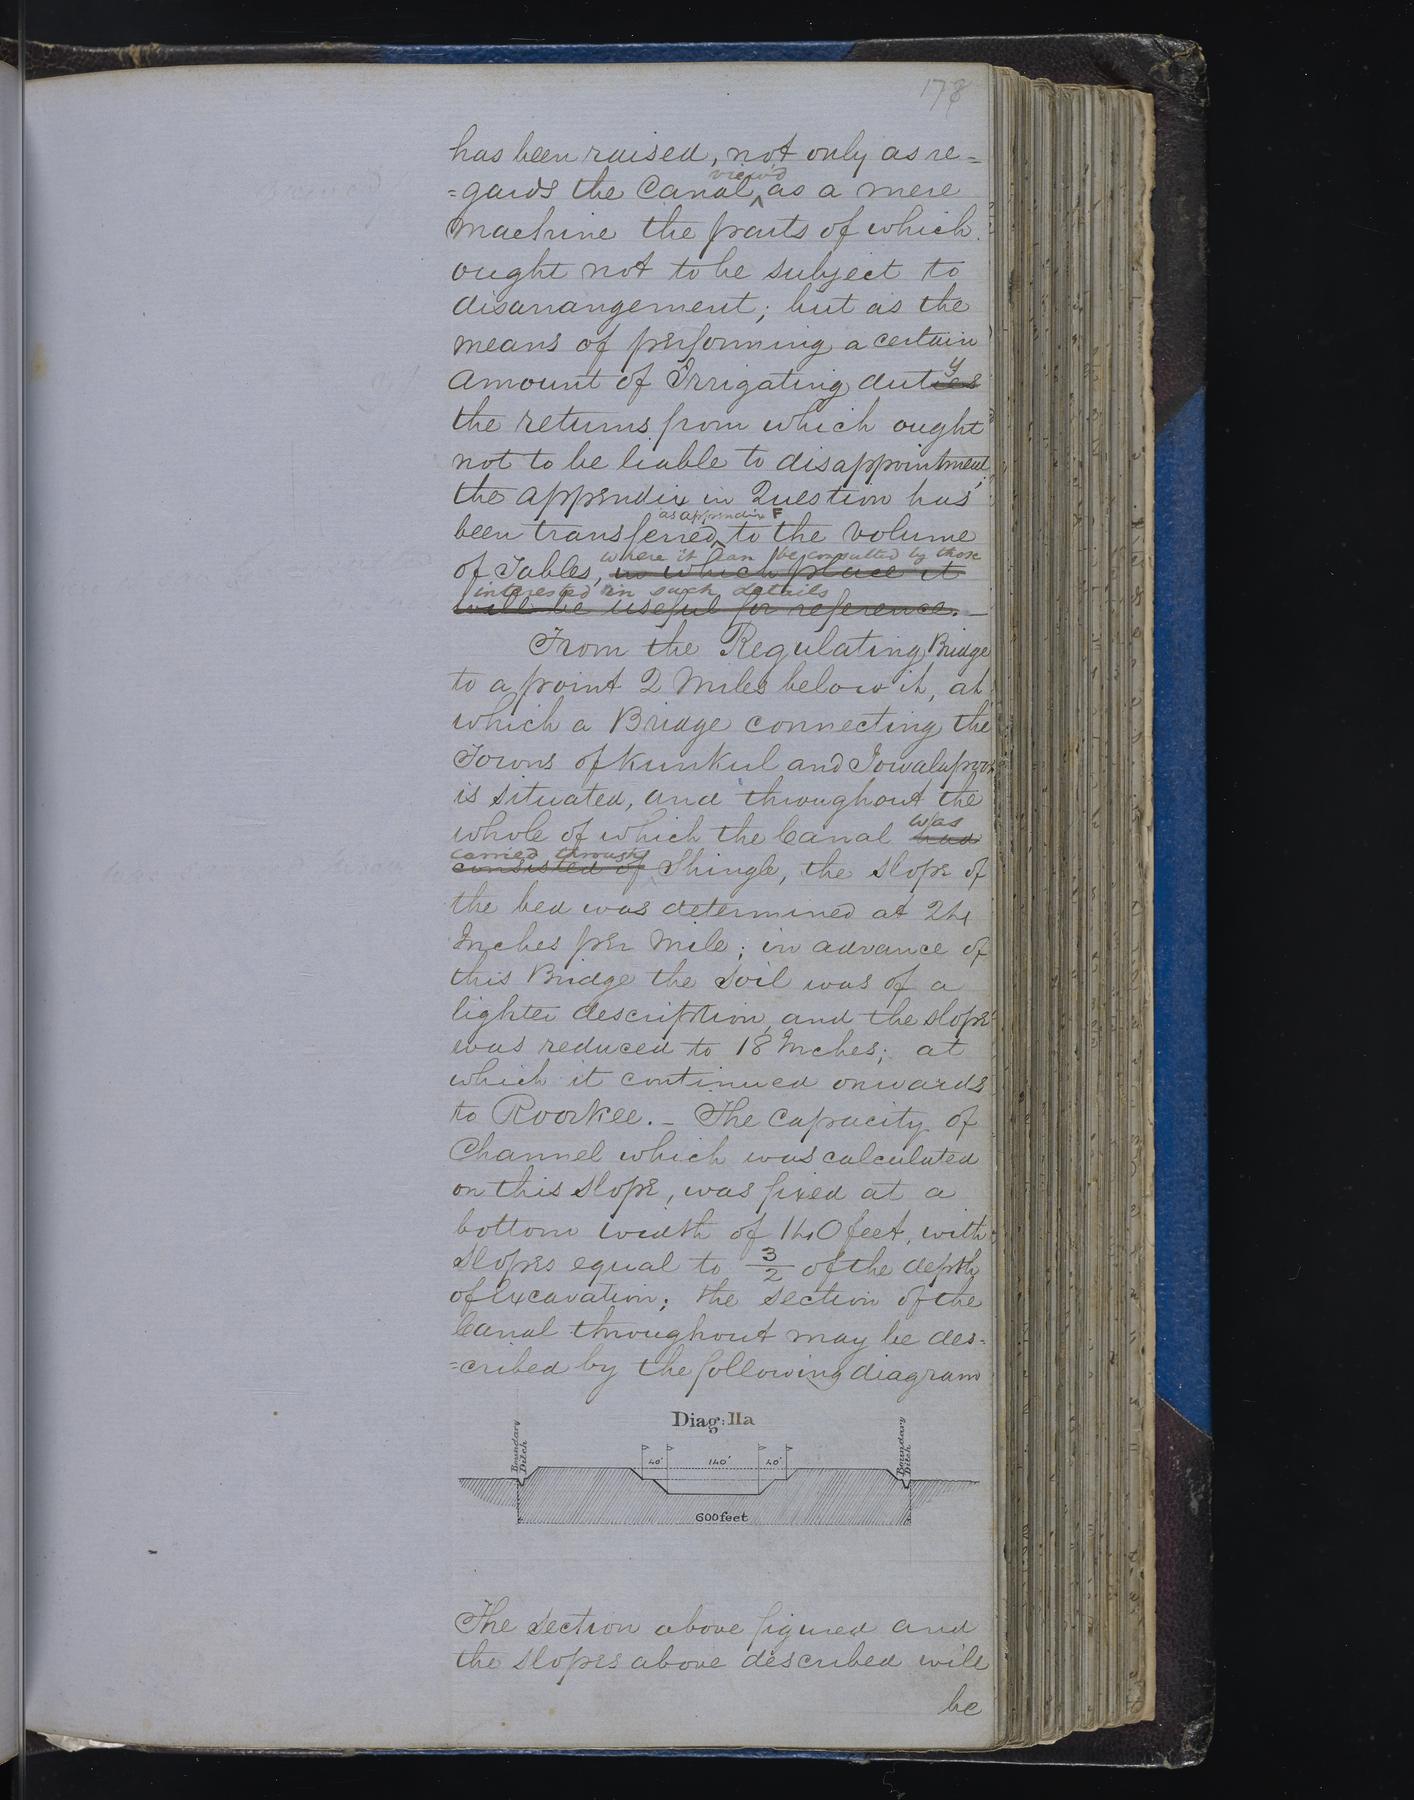 178
has been raised, not only as re=
=gards the Canal viewed as a mere
machine the parts of which
ought not to be subject to
disarrangement; but as the
means of performing a certain
amount of Irrigating duties y
the returns from which ought
not to be liable to disappointment,
the appendix in Question has
been transferred, as appendix F to the volume
of Tables, where it can be consulted by those
in which place it
interested in such details
will be useful for reference. —
From the Regulating Bridge
to a point 2 Miles below it, at
which a Bridge connecting the
Towns of Kunkul and Jowalapoor
is situated, and throughout the
whole of which the Canal had was
carried through
consisted of Shingle, the slope of
the bed was determined at 24
Inches per Mile; in advance of
this Bridge the soil was of a
lighter description, and the slope
was reduced to 18 Inches; at
which it continued onwards
to Roorkee. — The Capacity of
Channel which was calculated
on this slope, was fixed at a
bottom width of 140 feet, with
slopes equal to 3/2 of the depth
of Excavation; the section of the
Canal throughout may be des-
=cribed by the following diagram
Diag: IIa
Boundary Ditch
40' 140' 40'
Boundary Ditch
600 feet
The section above figured and
the slopes above described will
be